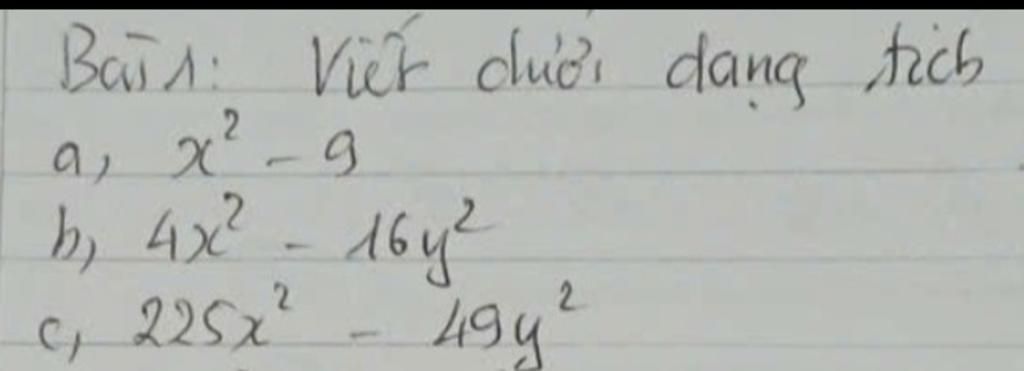 Bài 1: Viết dưới dạng tích
a, x² - 9
b, 4x² - 16y²
c, 225x² - 49y²